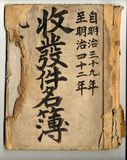 自明治三十九年
至明治四十二年
收發件名簿